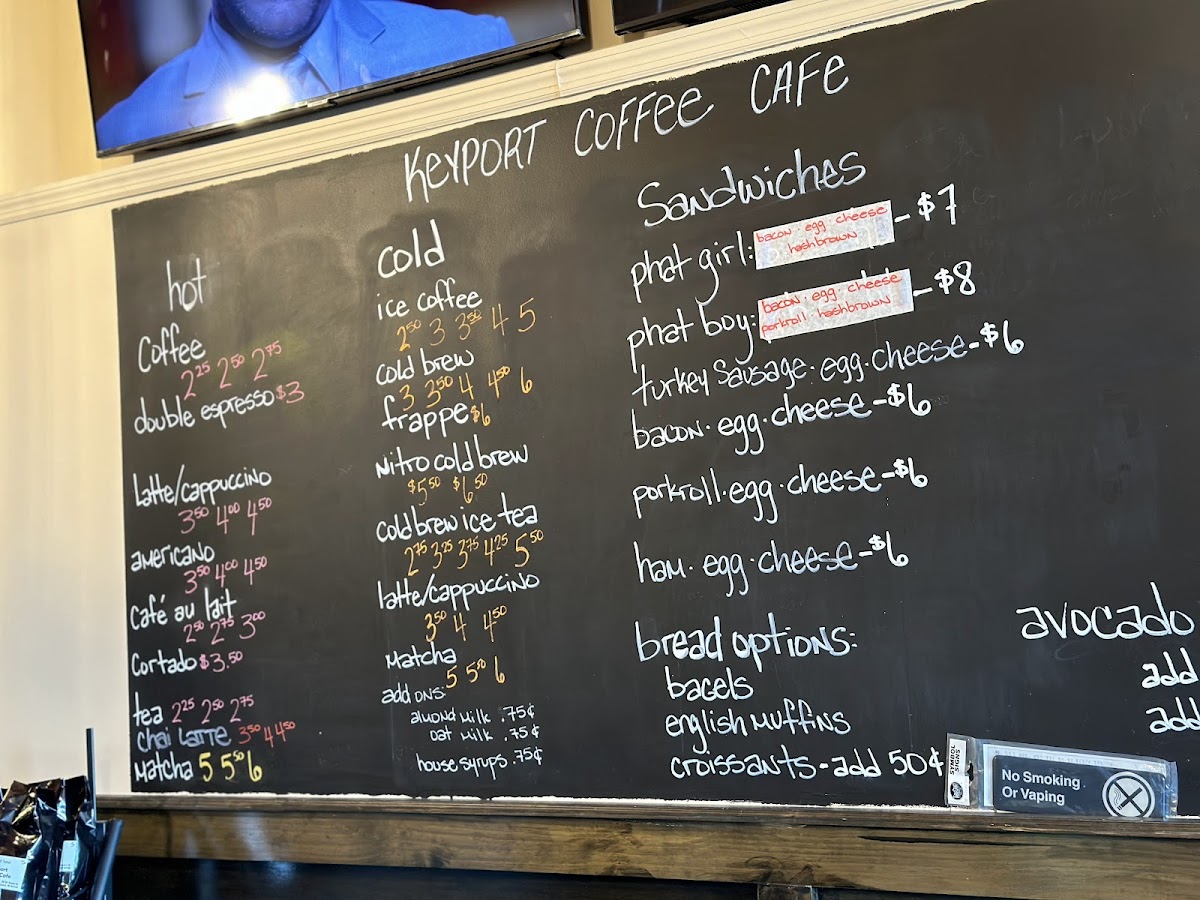 KEYPORT COFFEE CAFE
hot
Coffee
2²⁵ 2⁵⁰ 2⁷⁵
double espresso $3
Latte/cappuccino
3⁵⁰ 4⁰⁰ 4⁵⁰
americano
3⁵⁰ 4⁰⁰ 4⁵⁰
Café au lait
2⁵⁰ 2⁷⁵ 3⁰⁰
Cortado $3.50
tea 2²⁵ 2⁵⁰ 2⁷⁵
Chai Latte 3⁵⁰ 4 4⁵⁰
Matcha 5 5⁵⁰ 6
cold
ice coffee
2⁵⁰ 3 3⁵⁰ 4 5
cold brew
3 3⁵⁰ 4 4⁵⁰ 6
frappe $6
Nitro cold brew
$5⁵⁰ $6⁵⁰
cold brew ice tea
2⁷⁵ 3²⁵ 3⁷⁵ 4²⁵ 5⁵⁰
latte/cappuccino
3⁵⁰ 4 4⁵⁰
Matcha
5 5⁵⁰ 6
add ons:
almond milk .75¢
oat milk .75¢
house syrups .75¢
Sandwiches
phat girl: bacon · egg · cheese - $7
hashbrown
phat boy: bacon · egg · cheese - $8
porkroll · hashbrown
turkey sausage · egg · cheese - $6
bacon · egg · cheese - $6
porkroll · egg · cheese - $6
ham · egg · cheese - $6
bread options:
bagels
english muffins
croissants - add 50¢
avocado
add
add
SYMBOL SIGNS
No Smoking
Or Vaping